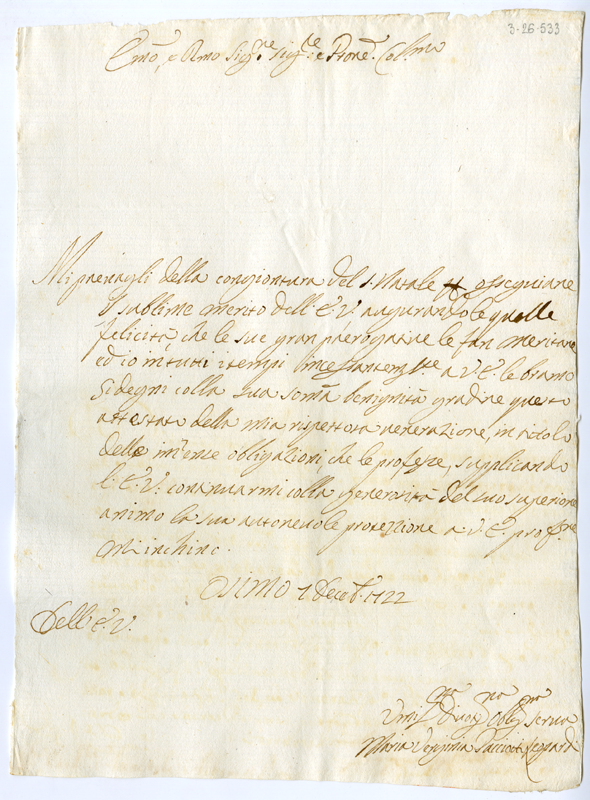 3-26-533
Emo, e Rmo Sigre Sigre e Prone Colmo
Mi prevagli della congiontura del S. Natale p ossequiare
il sublime merito dell'E.V. augurandole quelle
felicità, che le sue gran prerogative le fan meritare
ed io in tutti i tempi incessantemte a V.E. le bramo
Si degni colla sua soma benignità gradire questo
attestato della mia rispettosa venerazione, in
delle imense obligazioni, che le professo, supplicando
l'E.V. continuarmi colla generosità del suo superiore
animo la sua autorevole protezzione a V.E. prof.
m'inchino.
Osimo 7 Decbe 1722
Dell'E.V.
Umma Divma Obligma Serva
Maria Virginia Pacciaroni Leopardi